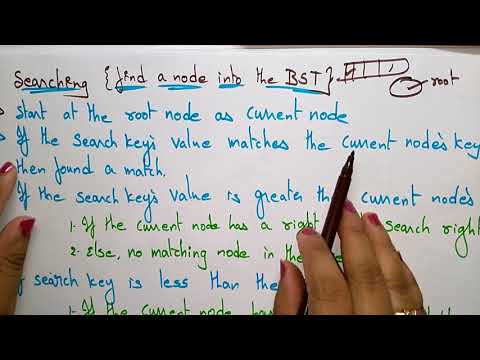 Searching {find a node into the BST}
root
start at the root node as current node
If the search key's value matches the current node's key
then found a match.
If the search key's value is greater than current node's
1. If the current node has a right search right
2. Else, no matching node in the
If search key is less than the
1. If the current node has